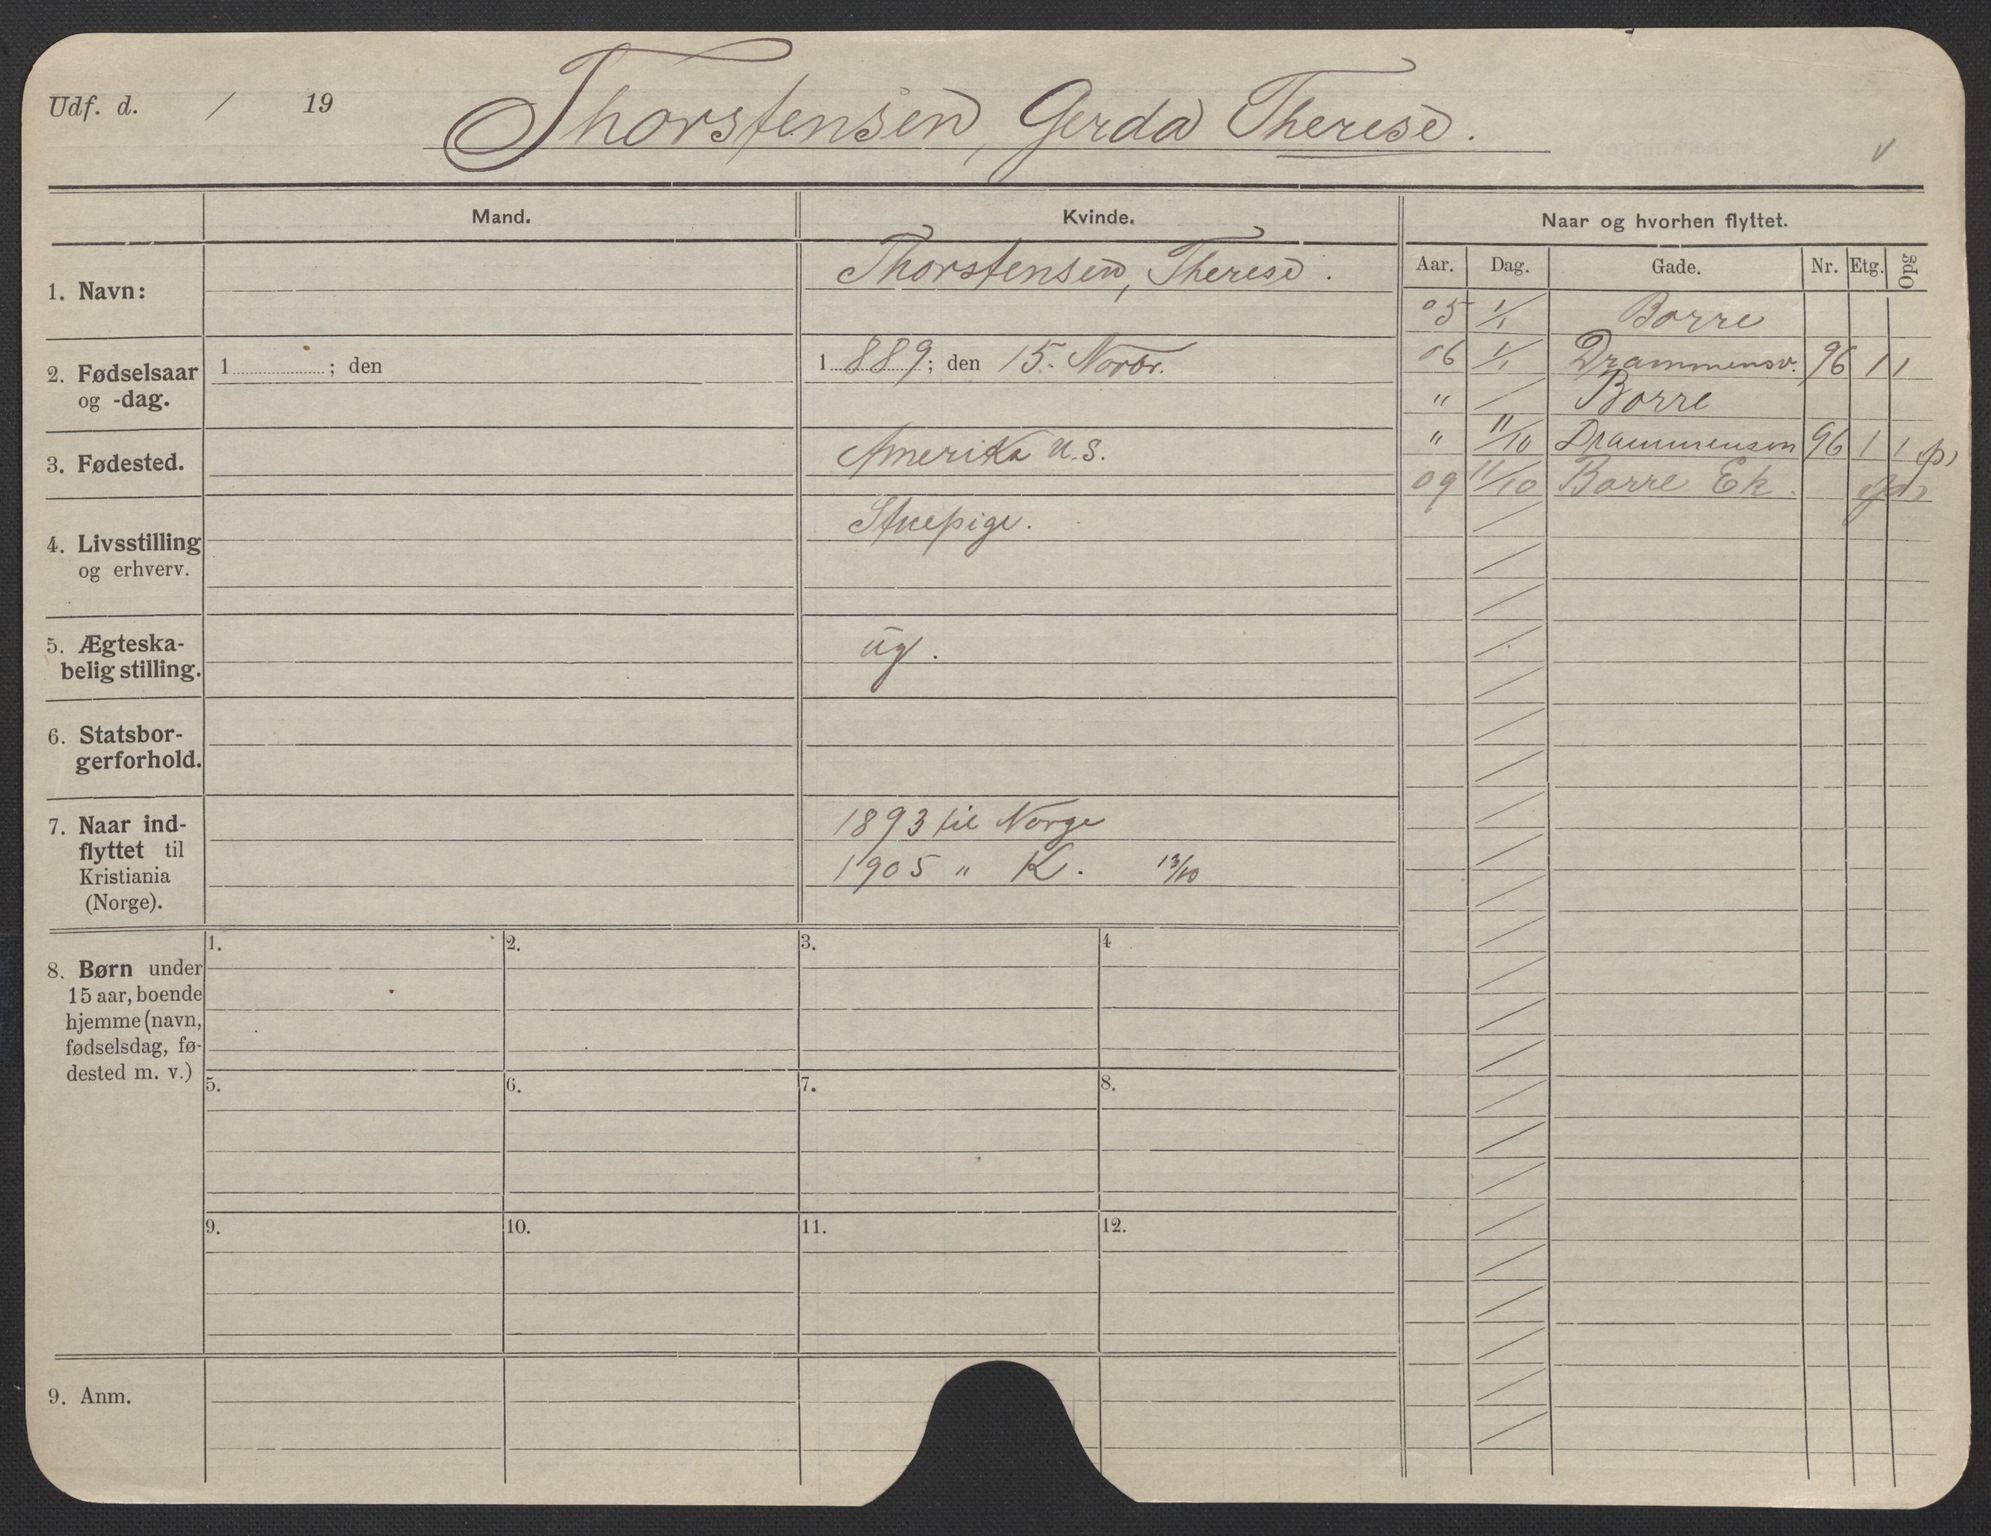 Udf. d. / 19
Thorstensen, Gerda Therese.
Mand.
Kvinde.
Naar og hvorhen flyttet.
Aar. Dag. Gade. Nr. Etg. Opg
1. Navn:
Thorstensen, Therese.
2. Fødselsaar
og -dag.
1 ; den
1889; den 15. Novbr.
3. Fødested.
Amerika U.S.
4. Livsstilling
og erhverv.
Stuepige.
5. Ægteska-
belig stilling.
ug.
6. Statsbor-
gerforhold.
7. Naar ind-
flyttet til
Kristiania
(Norge).
1893 til Norge
1905 " K. 13/10
8. Børn under
15 aar, boende
hjemme (navn,
fødselsdag, fø-
dested m. v.)
1. 2. 3. 4
5. 6. 7. 8.
9. 10. 11. 12.
9. Anm.
05 1/1 Borre
06 1/1 Drammensv. 96 1 1
" / Borre
" 11/10 Drammensvn 96 1 1
09 11/10 Borre Ek.